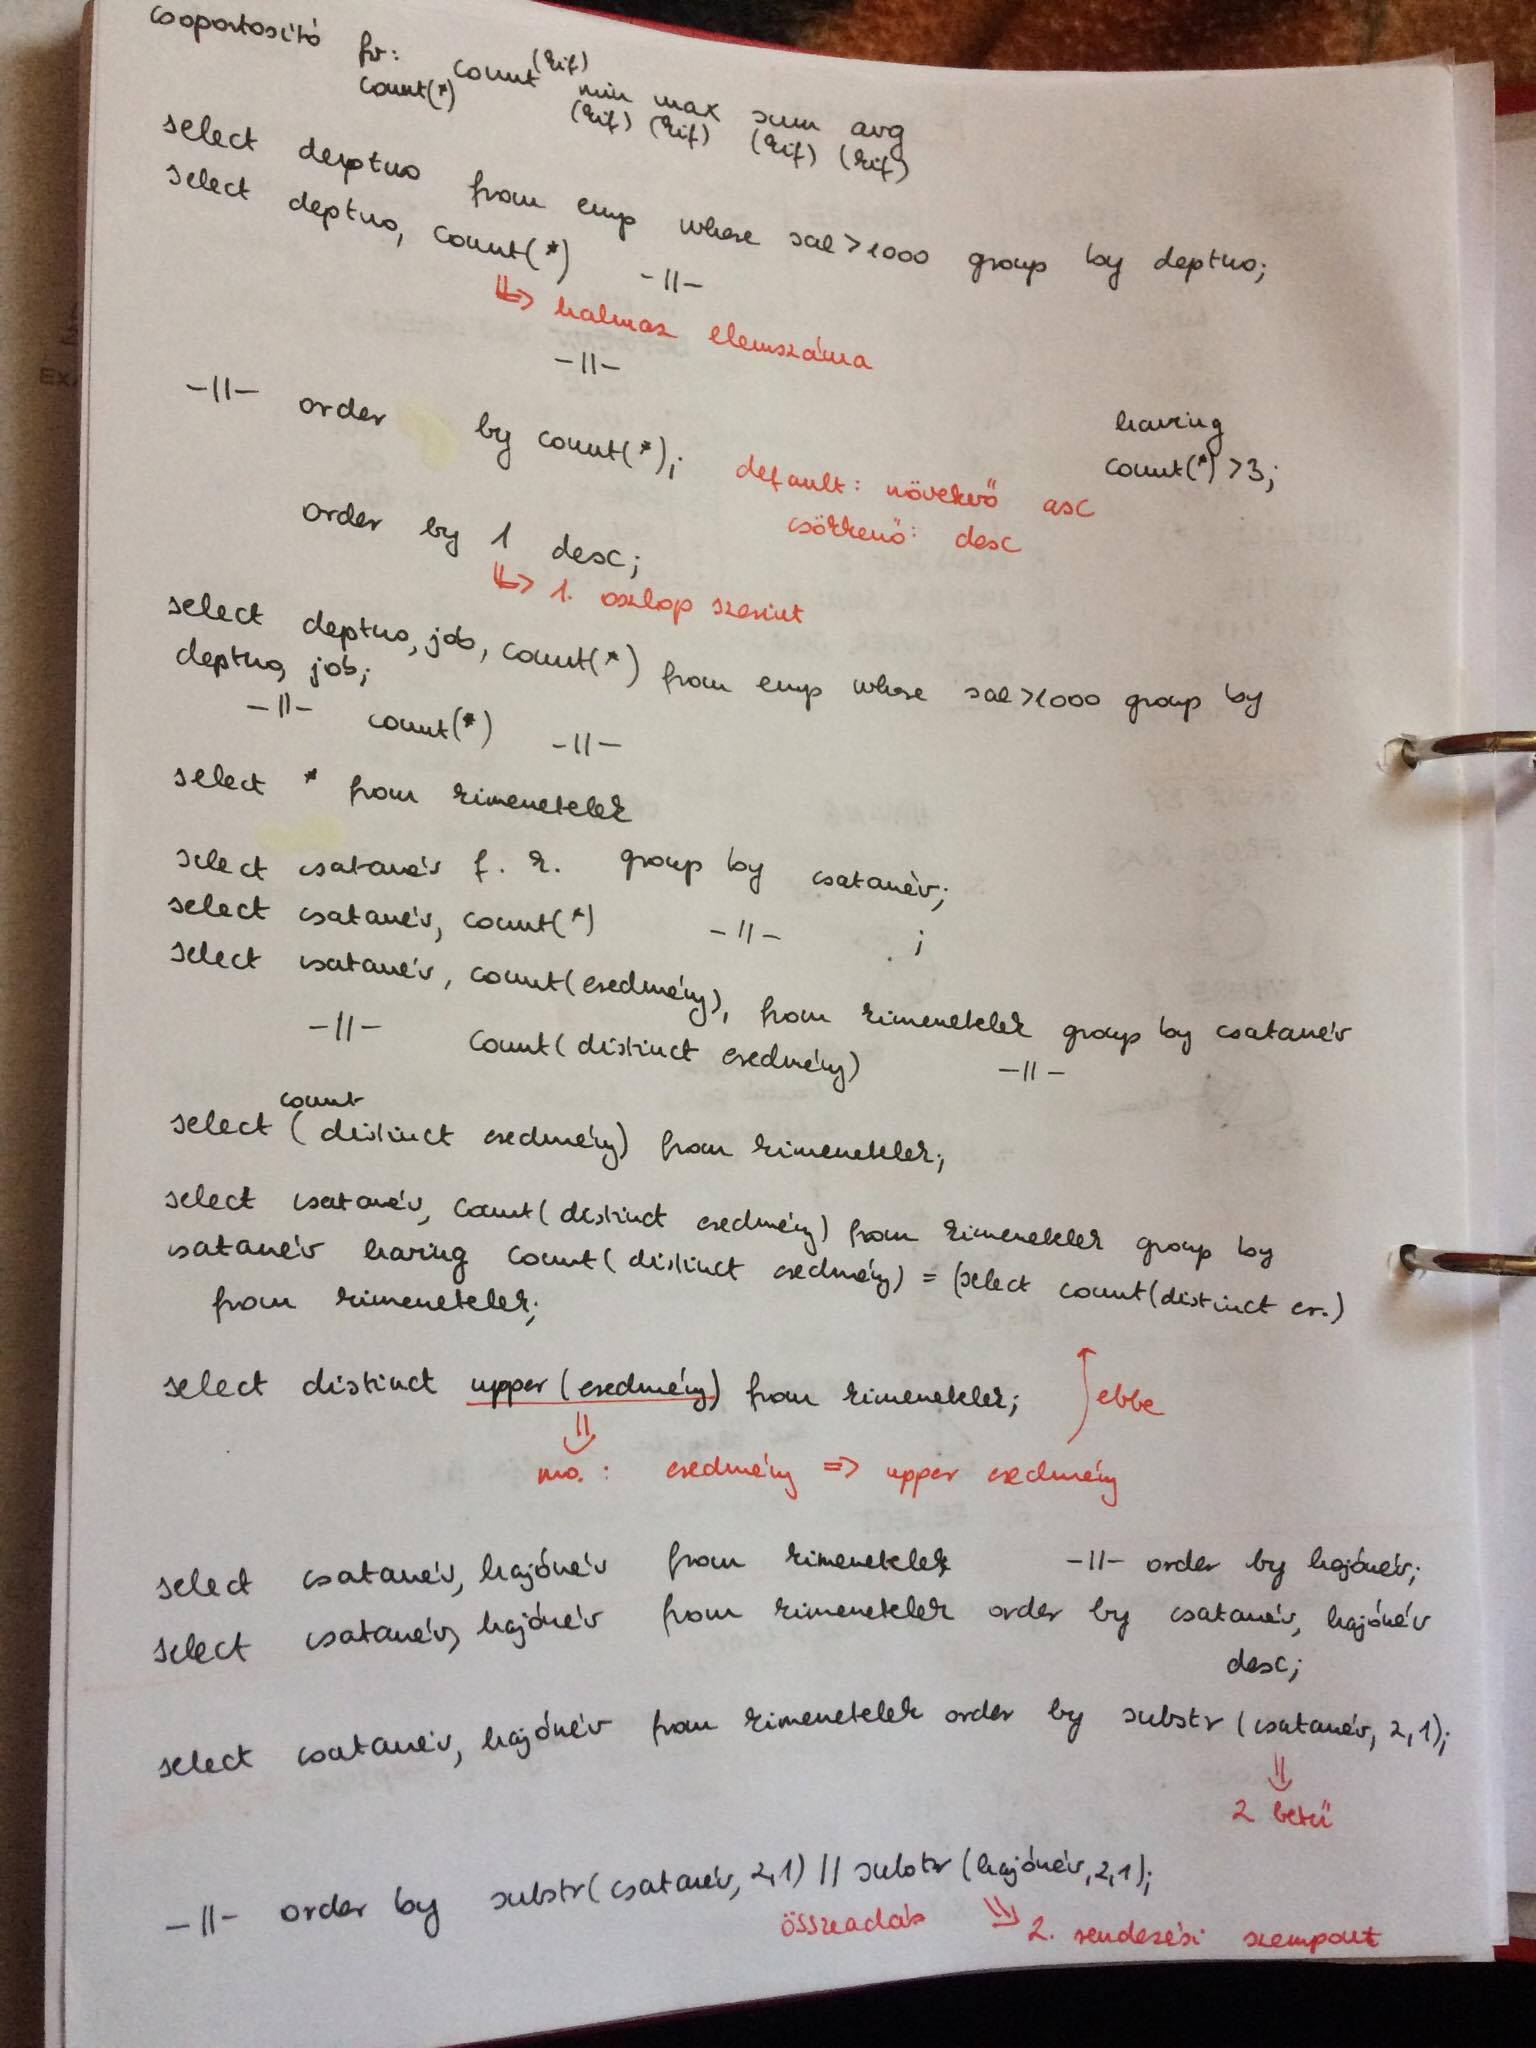 csoportosító fv: count(kif) min max sum avg
count(*) (kif) (kif) (kif) (kif)
select deptno from emp where sal>1000 group by deptno;
select deptno, count(*) -||-
=> halmaz elemszáma
-||-
-||- order by count(*); having
default: növekvő asc count(*)>3;
csökkenő: desc
order by 1 desc;
=> 1. oszlop szerint
select deptno, job, count(*) from emp where sal>1000 group by
deptno, job;
-||- count(*) -||-
select * from kimenetelek
select csatanév f. k. group by csatanév;
select csatanév, count(*) -||- ;
select csatanév, count(eredmény), from kimenetelek group by csatanév
-||- count(distinct eredmény) -||-
select count(distinct eredmény) from kimenetelek;
select csatanév, count(distinct eredmény) from kimenetelek group by
csatanév having count(distinct eredmény) = (select count(distinct er.)
from kimenetelek;
select distinct upper(eredmény) from kimenetelek; ebbe
mo.: eredmény => upper eredmény
select csatanév, hajónév from kimenetelek -||- order by hajónév;
select csatanév, hajónév from kimenetelek order by csatanév, hajónév
desc;
select csatanév, hajónév from kimenetelek order by substr(csatanév, 2,1);
2 betű
-||- order by substr(csatanév, 2,1) || substr(hajónév,2,1);
összeadás => 2. rendezési szempont